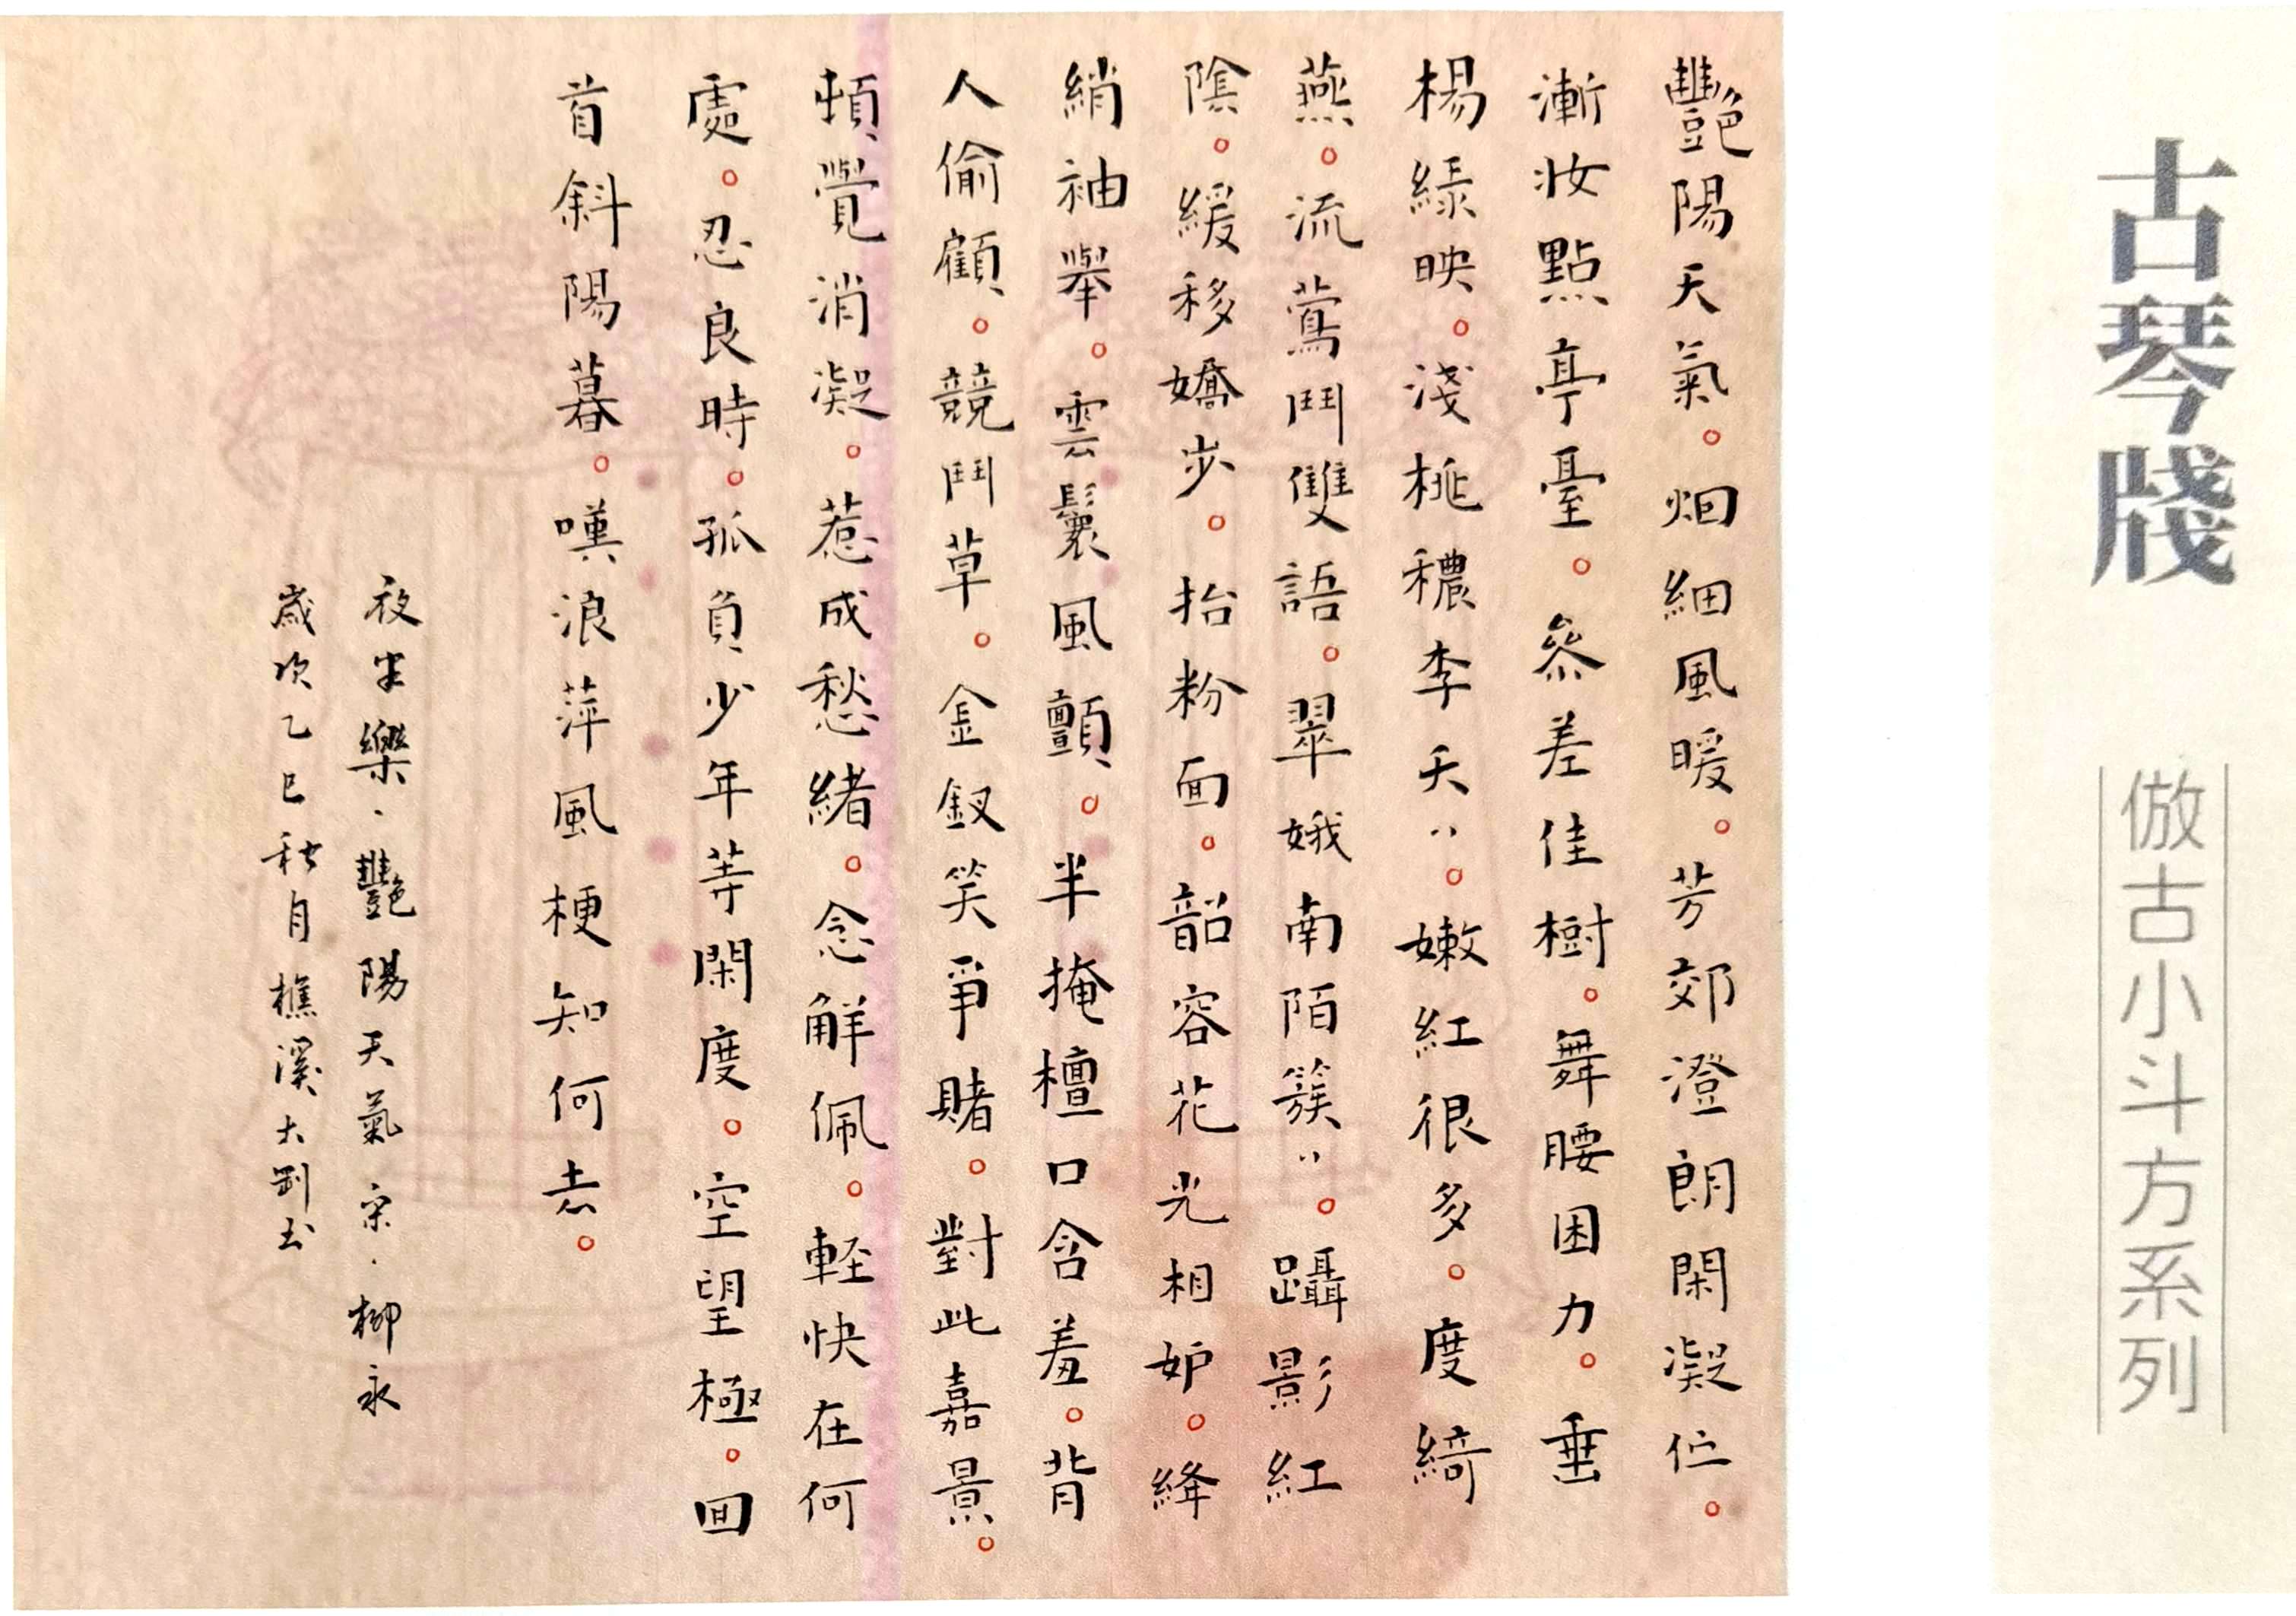 古琴牋
倣古小斗方系列
豔陽天氣。烟細風暖。芳郊澄朗閑凝伫。
漸妆點亭臺。叅差佳樹。舞腰困力。垂
楊綠映。淺桃穠李夭〻。嫩紅很多。度綺
燕。流鶯鬥雙語。翠娥南陌簇〻。躡影紅
陰。緩移嬌步。抬粉面。韶容花光相妒。絳
綃袖舉。雲鬟風顫。半掩檀口含羞。背
人偷顧。競鬥草。金釵笑爭賭。對此嘉景。
頓覺消凝。惹成愁緒。念解佩。輕快在何
處。忍良時。孤負少年等閑度。空望極。回
首斜陽暮。嘆浪萍風梗知何去。
夜半樂·豔陽天氣 宋·柳永
歲次乙巳·秋月樵溪大剛书